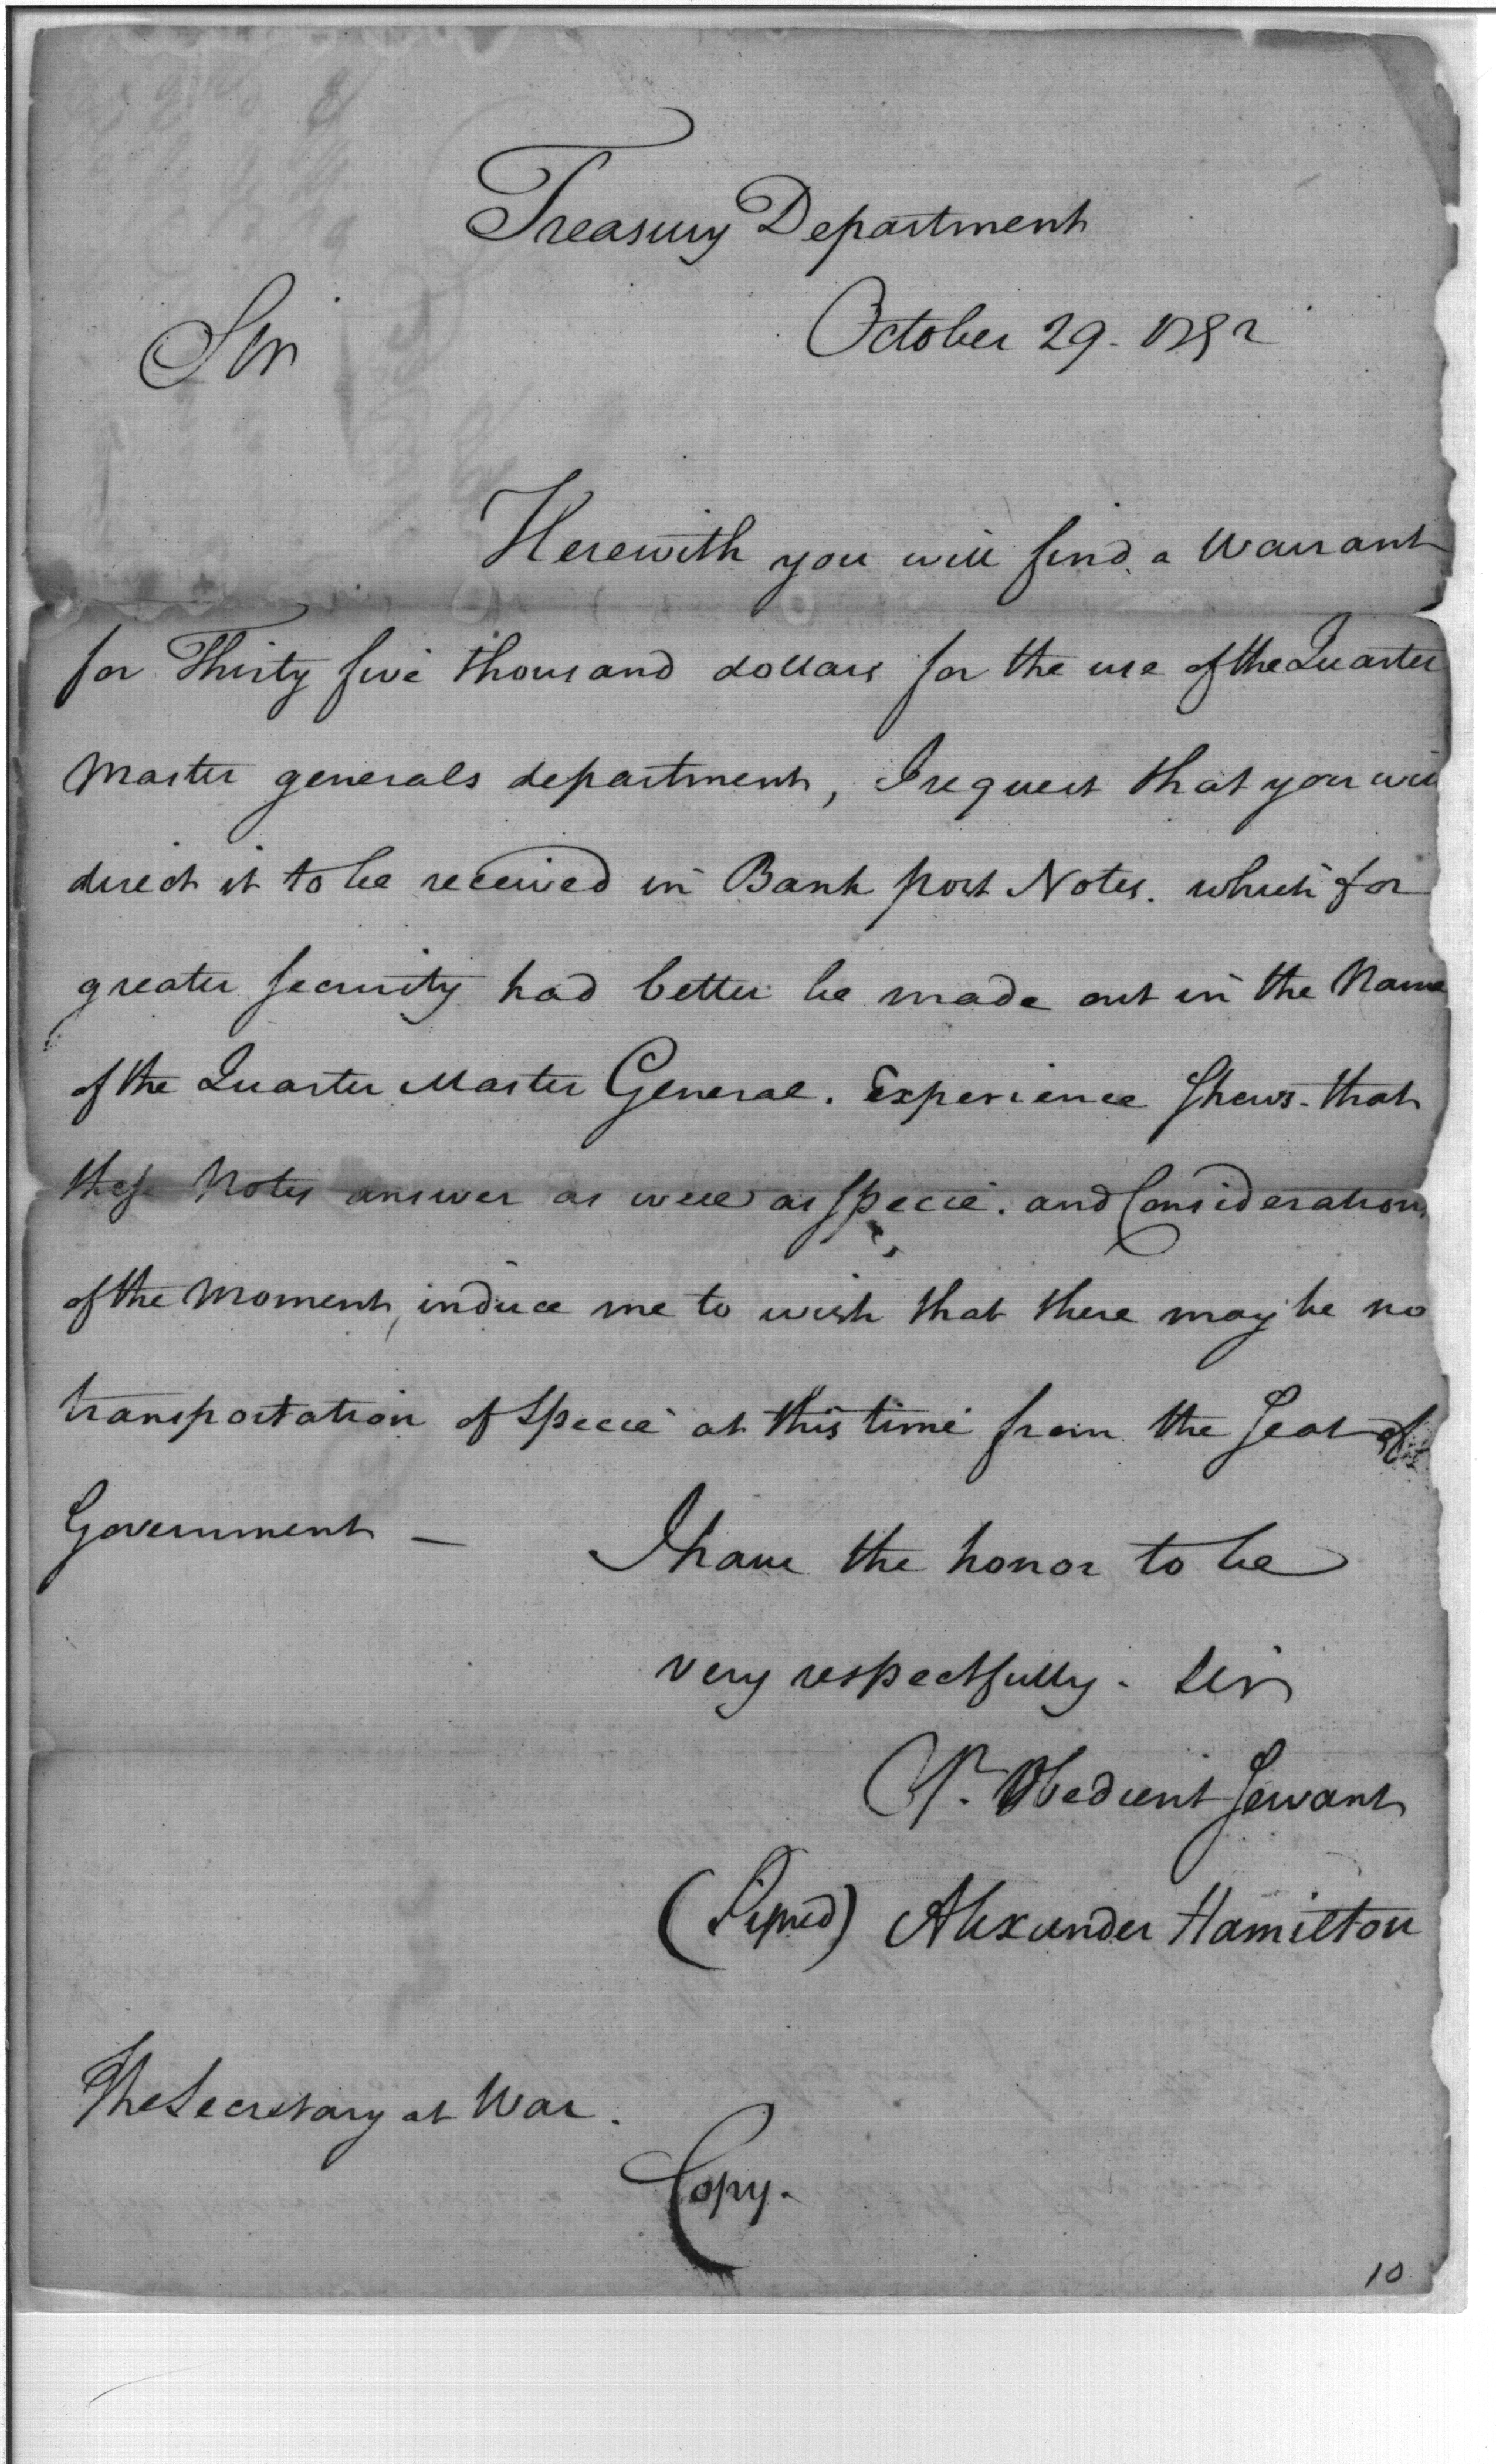 Treasury Department
October 29. 1792
Sir
Herewith you will find a Warrant
for Thirty five thousand dollars for the use of the Quarter
Master generals department, I request that you will
direct it to be received in Bank post Notes. which for
greater security had better be made out in the Name
of the Quarter Master General. Experience shews that
these Notes answer as well as specie. and Considerations
of the Moment, induce me to wish that there may be no
transportation of specie at this time from the Seat of
Government —
I have the honor to be
very respectfully. Sir
Yr. Obedient Servant
(Signed) Alexander Hamilton
The Secretary at War.
Copy.
10